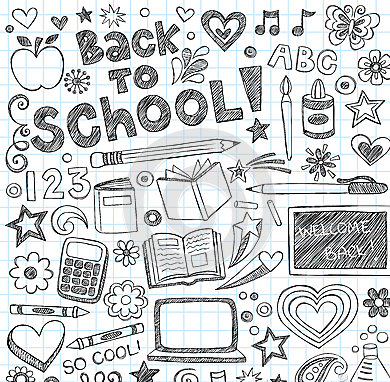 Back
to
School!
ABC
123
WELCOME
BACK!
SO COOL!